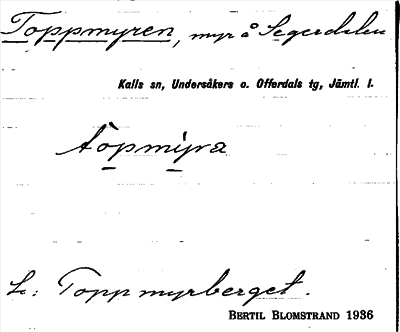 Toppmyren, myr å Segerdalen
Kalls sn, Undersåkers o. Offerdals tg, Jämtl. l.
töpmyra
Se: Toppmyrberget.
BERTIL BLOMSTRAND 1936